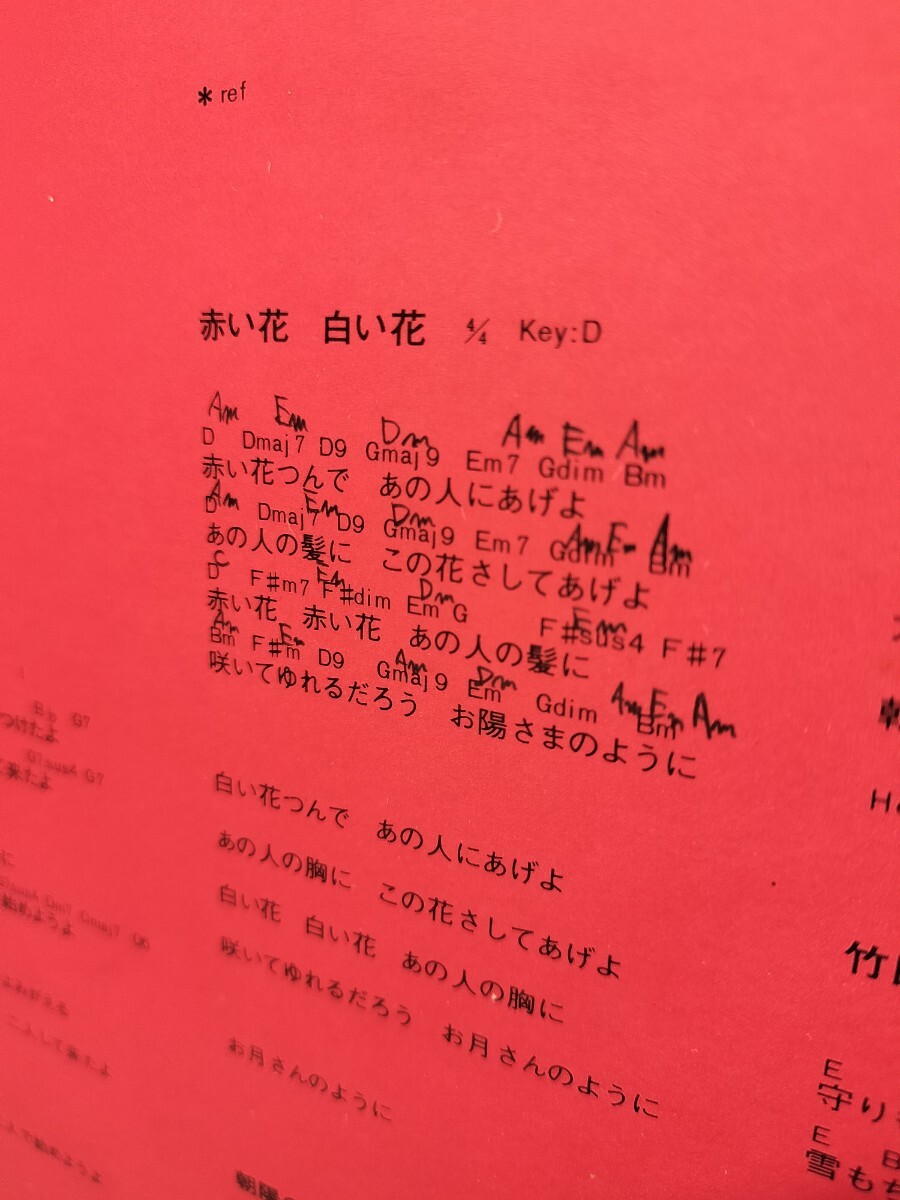 * ref
赤い花 白い花 4/4 Key:D
Am Em Dm Am Em Am
D Dmaj7 D9 Gmaj9 Em7 Gdim Bm
赤い花つんで あの人にあげよ
Am Em Dm Am Em Am
D Dmaj7 D9 Gmaj9 Em7 Gdim Bm
あの人の髪に この花さしてあげよ
C Em Dm Em
D F#m7 F#dim Em G F#sus4 F#7
赤い花 赤い花 あの人の髪に
Am Em Am Dm Am Em Am
Bm F#m D9 Gmaj9 Em Gdim Bm
咲いてゆれるだろう お陽さまのように
白い花つんで あの人にあげよ
あの人の胸に この花さしてあげよ
白い花 白い花 あの人の胸に
咲いてゆれるだろう お月さんのように
お月さんのように
朝陽
G7
つけたよ
G7sus4 G7
て来たよ
に
Dm7 Gmaj7 G6
始めようよ
二人して来たよ
二人で始めようよ
竹
E
守り
E B
雪もち